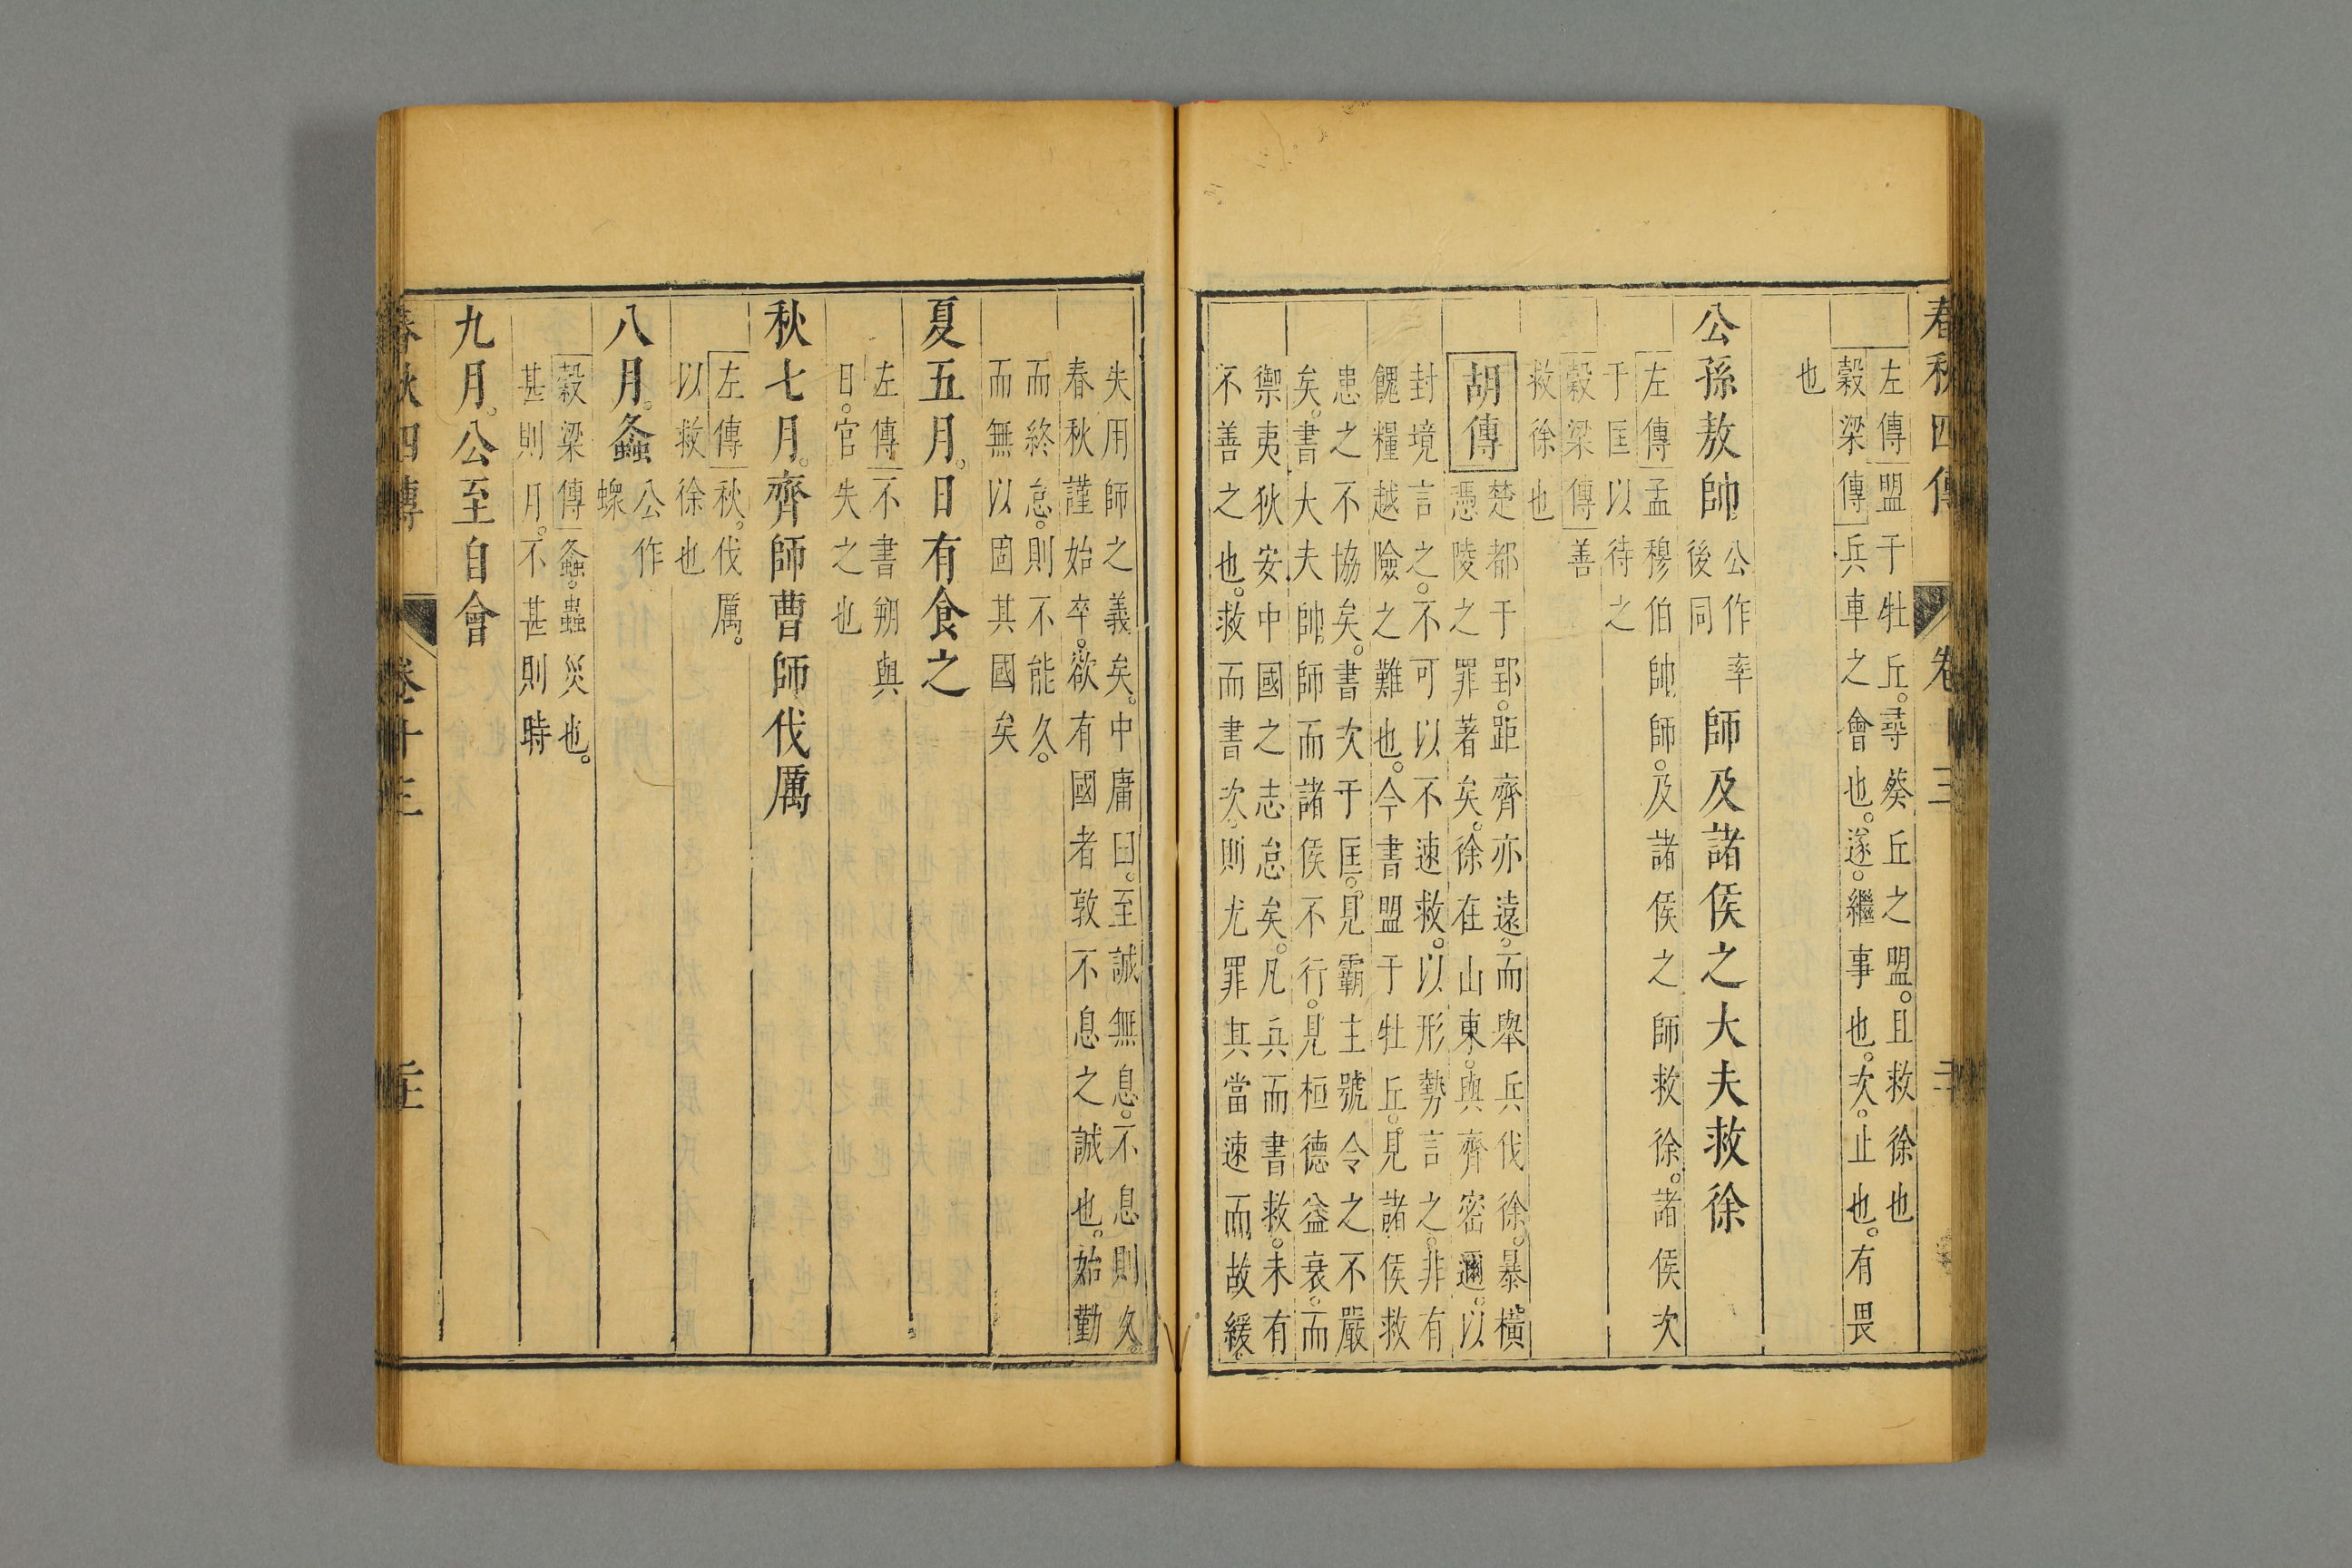 春秋四傳 卷十三
左傳盟于牡丘。尋葵丘之盟。且救徐也
穀梁傳兵車之會也。遂。繼事也。次。止也。有畏
也
公孫敖帥公作率後同師及諸侯之大夫救徐
左傳孟穆伯帥師。及諸侯之師救徐。諸侯次
于匡以待之
穀梁傳善
救徐也
胡傳楚都于郢。距齊亦遠。而舉兵伐徐。暴橫
憑陵之罪著矣。徐在山東。與齊密邇。以
封境言之。不可以不速救。以形勢言之。非有
餽糧越險之難也。今書盟于牡丘。見諸侯救
患之不協矣。書次于匡。見霸主號令之不嚴
矣。書大夫帥師而諸侯不行。見桓德益衰。而
禦夷狄安中國之志怠矣。凡兵而書救。未有
不善之也。救而書次。則尤罪其當速而故緩。
失用師之義矣。中庸曰。至誠無息。不息則久。
春秋謹始卒。欲有國者敦不息之誠也。始勤
而終怠。則不能久。
而無以固其國矣
夏五月。日有食之
左傳不書朔與
日。官失之也
秋七月。齊師曹師伐厲
左傳秋。伐厲。
以救徐也
八月。螽公作螺
穀梁傳螽。蟲災也。
甚則月。不甚則時
九月。公至自會
春秋四傳 卷十三